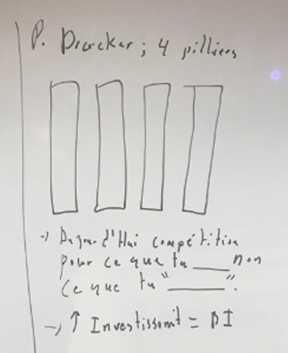 P. Drucker ; 4 pilliers
compétition
pour ce que tu ____ non
ce que tu "____".
→ ↑ Investissemt =